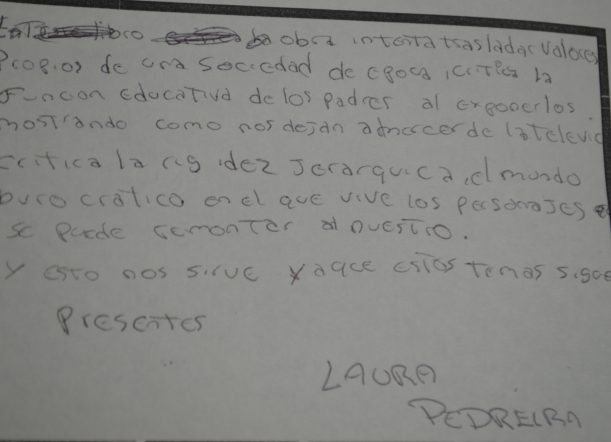 La obra intenta trasladar valores
Propios de una Sociedad de epoca, critica la
Funcon educativa de los padres al exponerlos
mostrando como nos dejan a de la Televic
critica la rigidez Jerarquica, el mundo
burocratico en el que vive los personajes e
se puede remonter al nuestro.
Y esto nos sirve ya que estos temas sigue
Presentes
LAURA
PEDREIRA